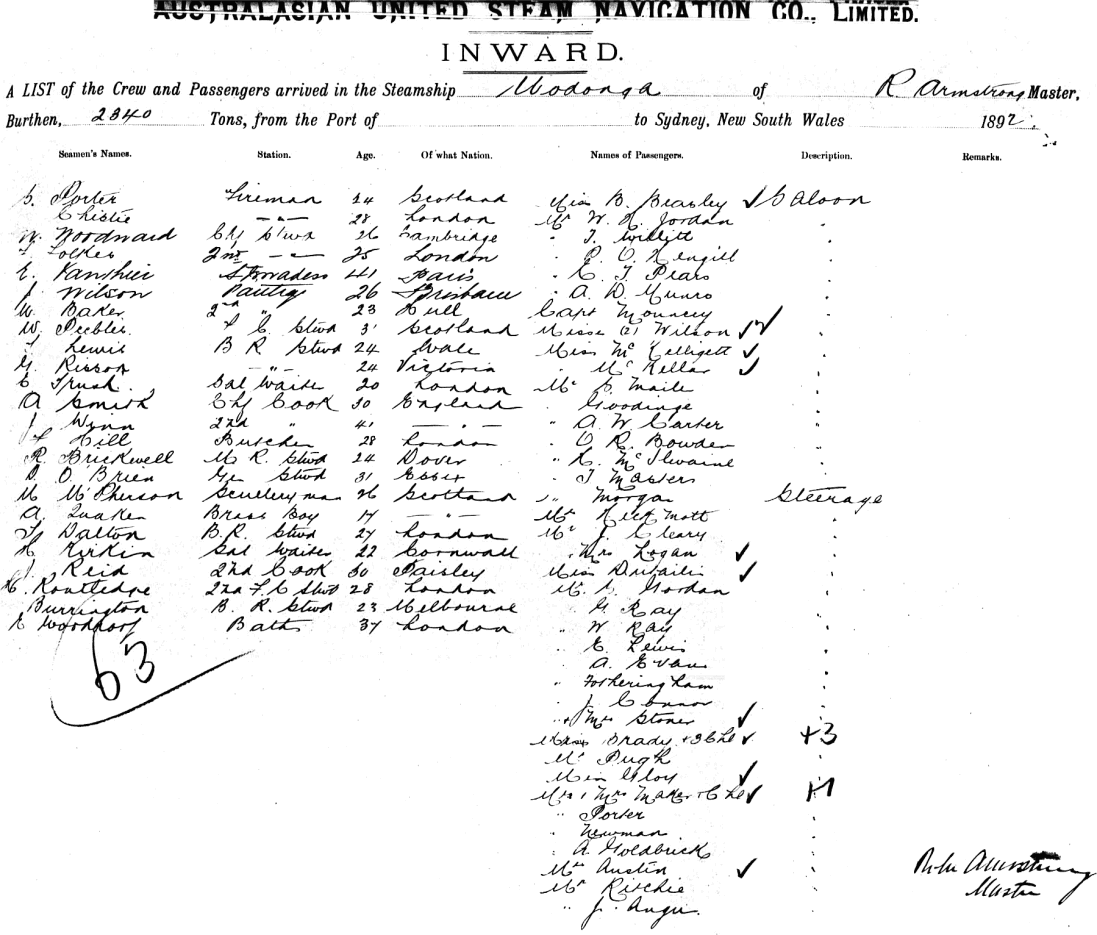 AUSTRALASIAN UNITED STEAM NAVIGATION CO., LIMITED.
INWARD.
A LIST of the Crew and Passengers arrived in the Steamship Wodonga of R. Armstrong Master,
Burthen, 2340 Tons, from the Port of to Sydney, New South Wales 1892
Seamen's Names. Station. Age. Of what Nation. Names of Passengers. Description. Remarks.
Porter Fireman 24 Scotland Miss B. Beasley ✓ Saloon
Christie — " — 28 London Mr W. H. Jordan
W. Woodward Chf Stwd 26 Cambridge " T.
2nd — " — 25 London "
E. Stewardess 41 Paris " T Pears
J. Wilson Pantry 26 Brisbane " A. D. Munro
W. Baker 2nd " 23 Hull Capt Mounsey
W. Peebles F. C. Stwd 31 Scotland Misses (2) Wilson ✓✓
Lewis B R Stwd 24 Wales Miss ✓
G. — " — 24 Victoria " McKellar ✓
Trush Sal Waiter 20 London Mr Maile
A Smith Chf Cook 30 England " Goodinge
J Wynn 2nd " 41 — " — " A W Carter
Hill Butcher 28 London " O. R. Bowden
R. Brickwell M R. Stwd 24 Dover " McIlwaine
O. O'Brien Stwd 31 Essex " T Masters
M McPherson Scullery man 26 Scotland " Morgan Steerage
A. Quaken Brass Boy 17 — " — Mott
Dalton B.R. Stwd 27 London Mr J. Cleary
H Kirkin Sal Waiter 22 Cornwall " Mrs Logan ✓
J. Reid 2nd Cook 30 Paisley Miss ✓
Routledge 2nd F C Stwd 28 London Mr Gordon
Burrington B. R. Stwd 23 Melbourne " G Ray
E Baths 37 London " W Ray
63
" E. Lewis
" A. Evans
" Fotheringham
" J Connor
" Mrs Stoner ✓
Brady + 3 Chl ✓ +3
Mr Pugh
Miss Gloy ✓
Mr & Mrs Maker + Chl ✓ +1
" Porter
" Newman
" A. Goldbrick
Austin ✓
Mr Ritchie
" J. Angus
Armstrong
Master